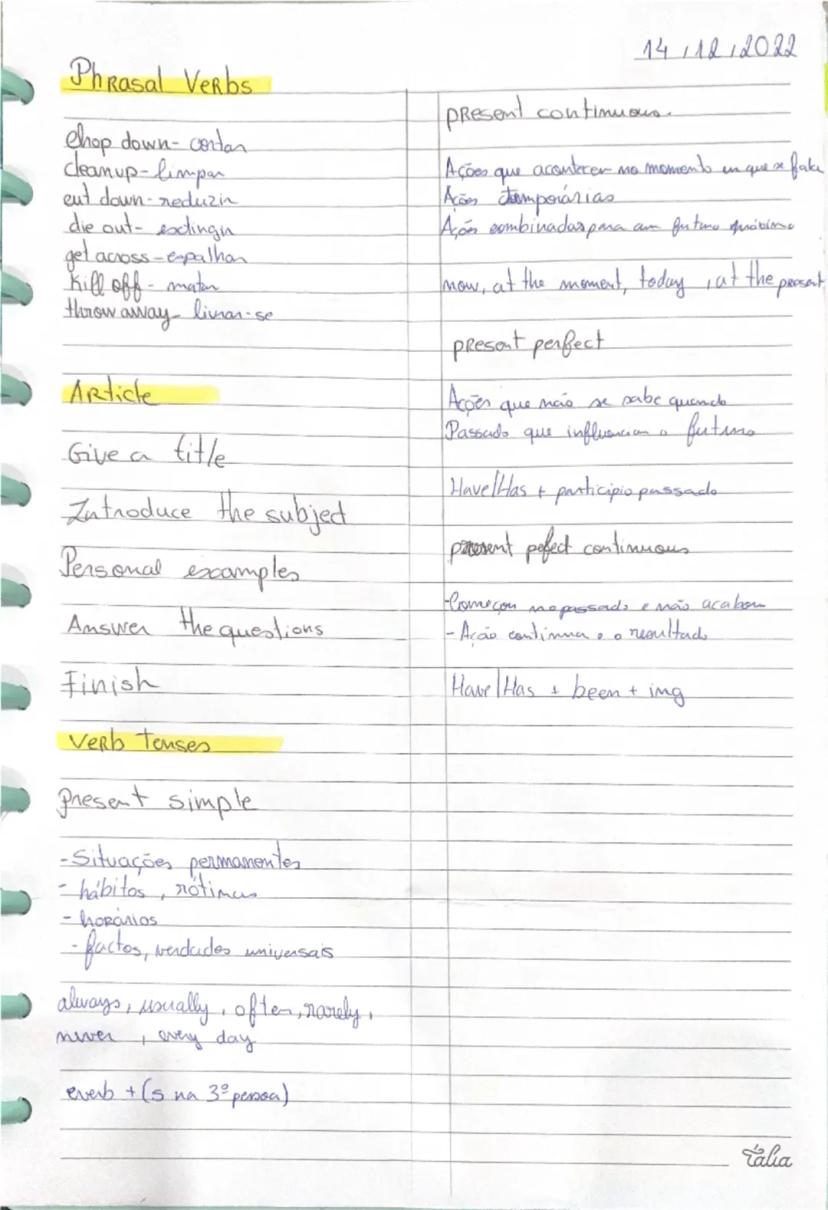 14/12/2022
Phrasal Verbs
chop down - cortar
cleanup - limpar
cut down - reduzir
die out - extinguir
get across - espalhar
Kill off - matar
throw away - livrar-se
Article
Give a title
Introduce the subject
Personal examples
Answer the questions
Finish
Verb tenses
Present simple
- Situações permanentes
- hábitos, rótinas
- horários
- factos, verdades universais
always, usually, often, rarely,
never, every day
verb + (s na 3ª pessoa)
present continuous.
Ações que acontecer no momento em que se fala
Ações temporárias
Ação combinadas para um futuro próximo
now, at the moment, today, at the present
present perfect
Ações que não se sabe quando
Passado que influenciam o futuro
Have/Has + participio passado
present pefect continuous
- Começou no passado e não acabou
- Ação continua e o resultado
Have/Has + been + ing
Tália